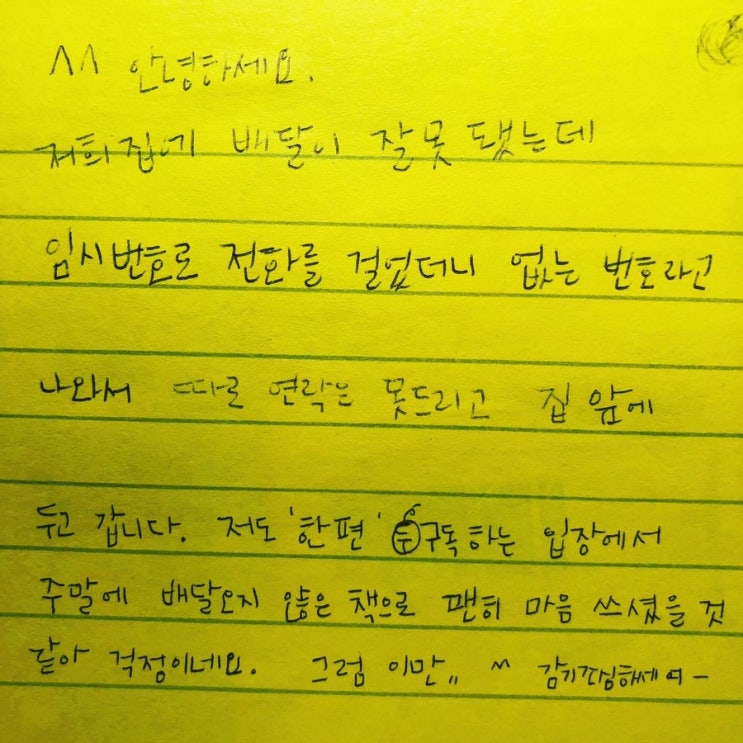 ^^ 안녕하세요.
저희집에 배달이 잘못 됐는데
임시번호로 전화를 걸었더니 없는 번호라고
나와서 따로 연락은 못드리고 집 앞에
두고 갑니다. 저도 '한편' 구독하는 입장에서
주말에 배달오지 않은 책으로 괜히 마음 쓰셨을 것
같아 걱정이네요. 그럼 이만,, ^^ 감기조심하세여-